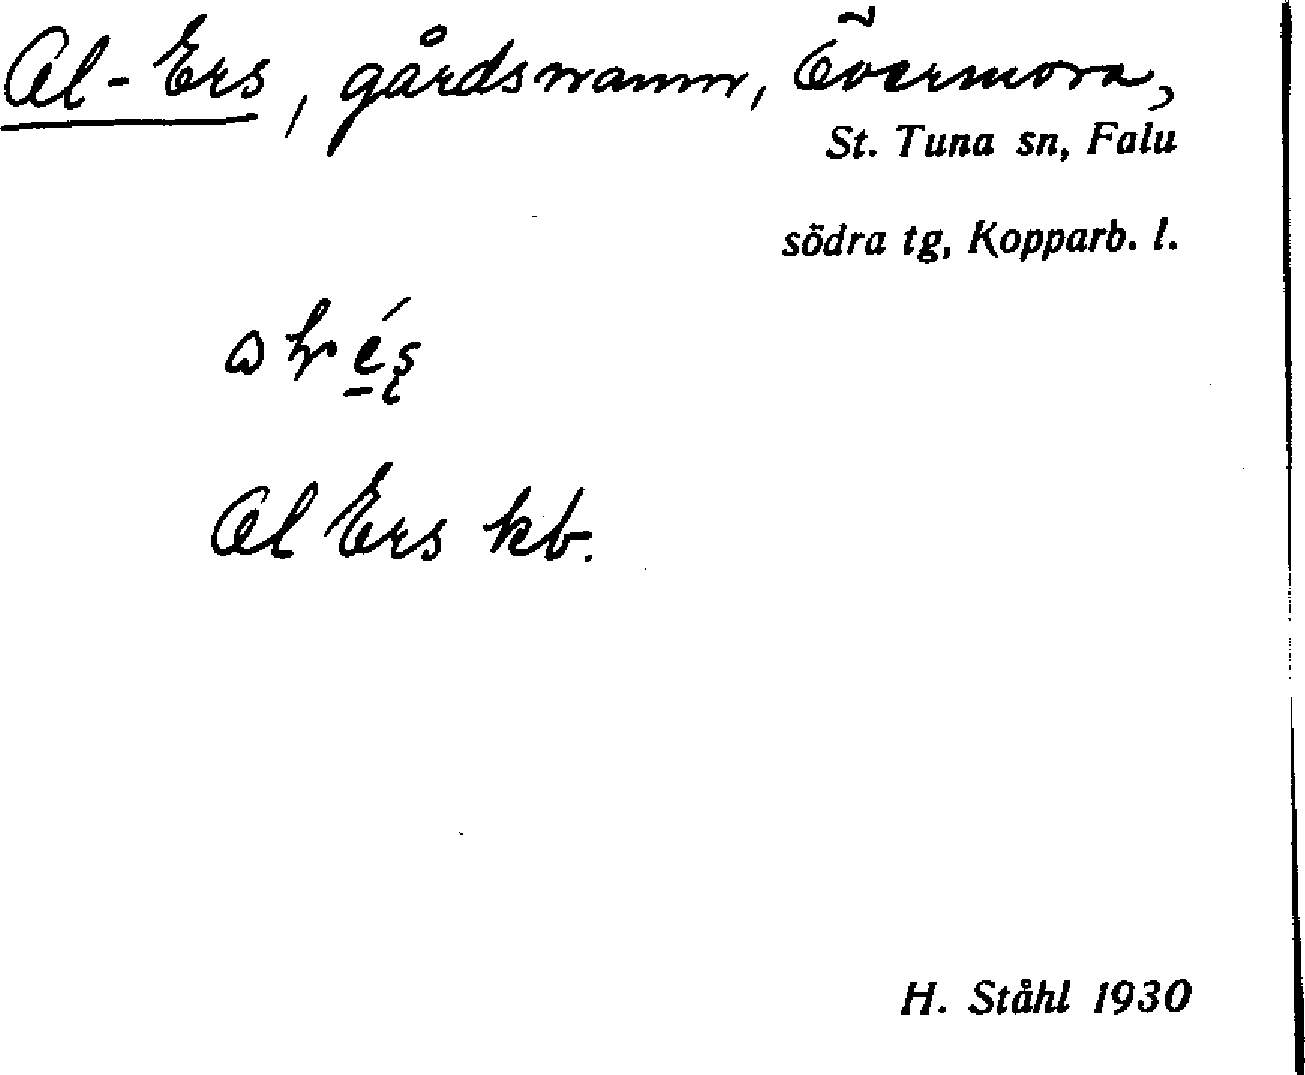 Al-Ers, gårdsnamn, Övermora,
St. Tuna sn, Falu
södra tg, Kopparb. l.
Al Ers kb.
H. Ståhl 1930